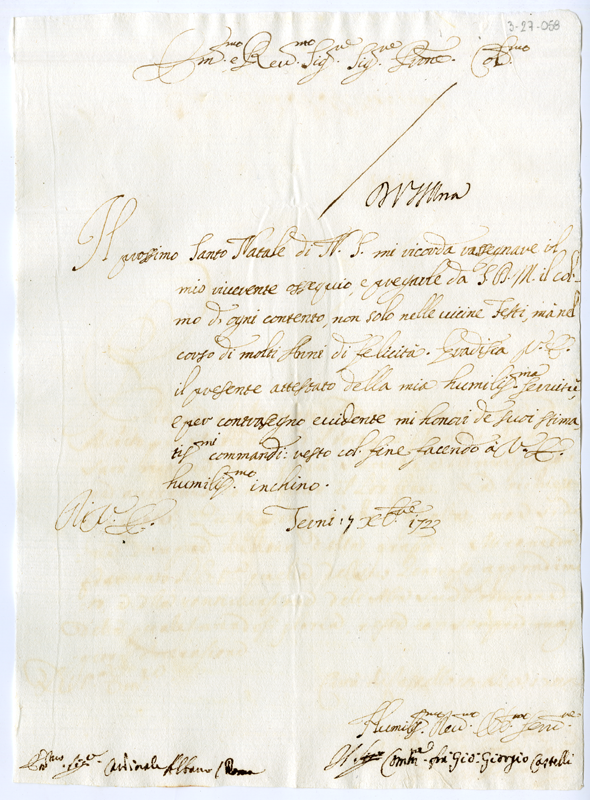 3-27-058
Em.mo e Rev.mo Sig.re Sig.re Prone. Col.mo
Il prossimo Santo Natale di N. S. mi ricorda rassegnare il
mio riverente ossequio, e pregarle da S. D. M. il col-
mo d'ogni contento, non solo nelle vicine Feste, mà nel
corso di molti Anni di felicità. Gradisca V. E.
il presente attestato della mia humiliss.ma servitù,
e per contrasegno evidente mi honori de suoi stima
tiss.mi commandi: resto col fine facendo à V. E.
humiliss.mo inchino.
Di V. E. Terni 17 Xbre 1723
Humiliss.mo Dev.mo Obb.mo Serv.re
Em.mo Sig.re Cardinale Albano / Roma Comm.re frà Gio: Giorgio Castelli